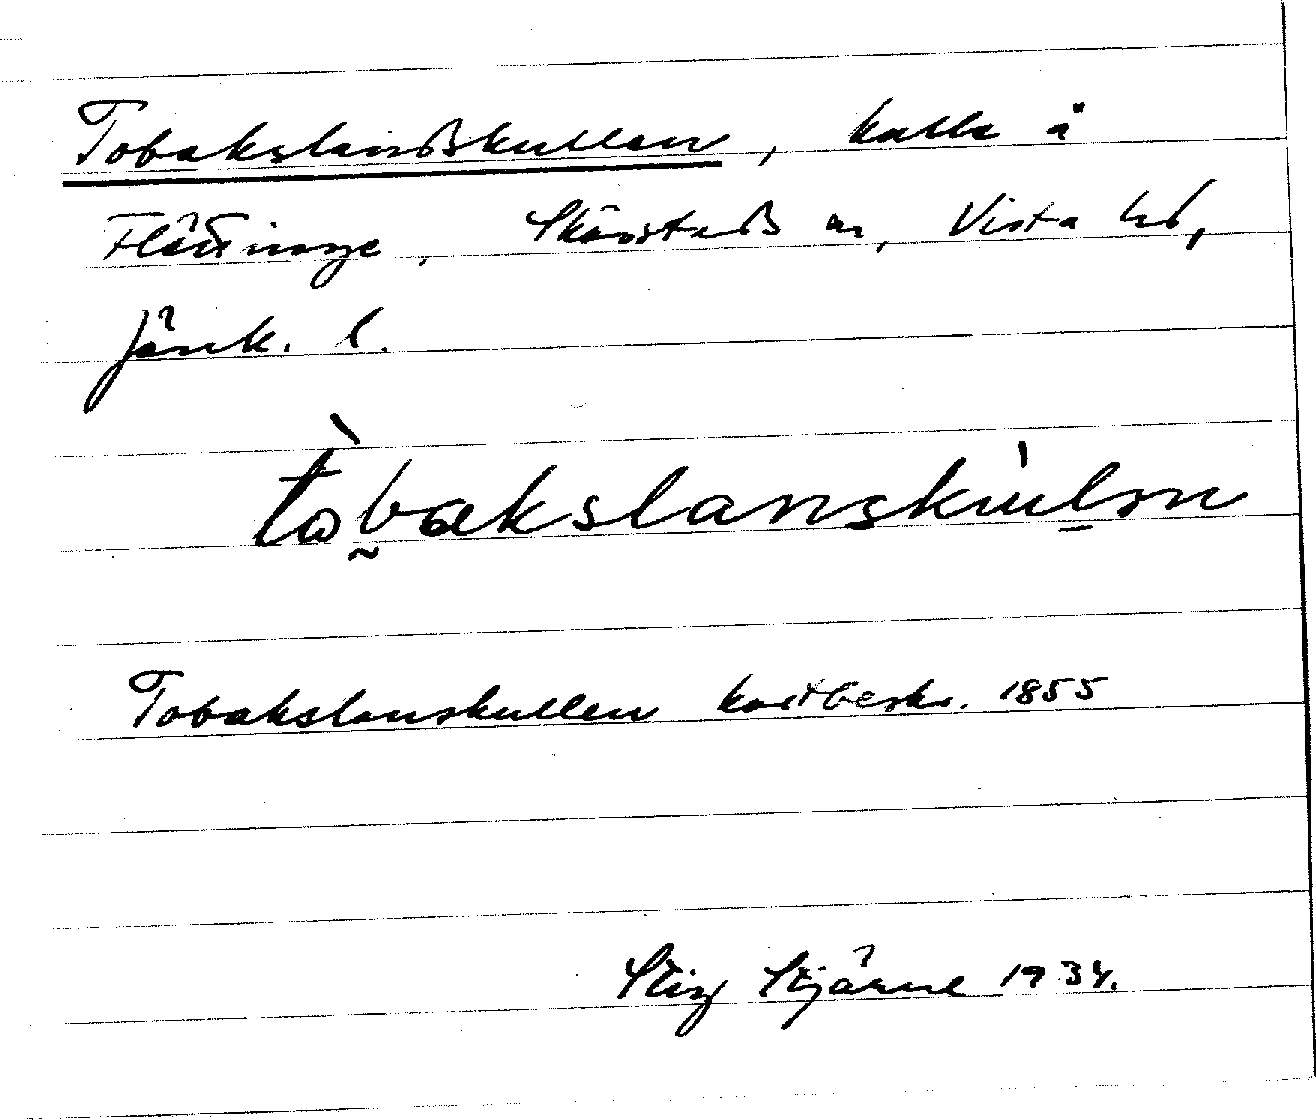 Tobakslandskullen, kulle å
Flättinge, Skärstads sn, Vista hd,
Jönk. l.
tòbakslanskùlən
Tobakslanskullen kartbeskr. 1855
Stig Stjärne 1934.